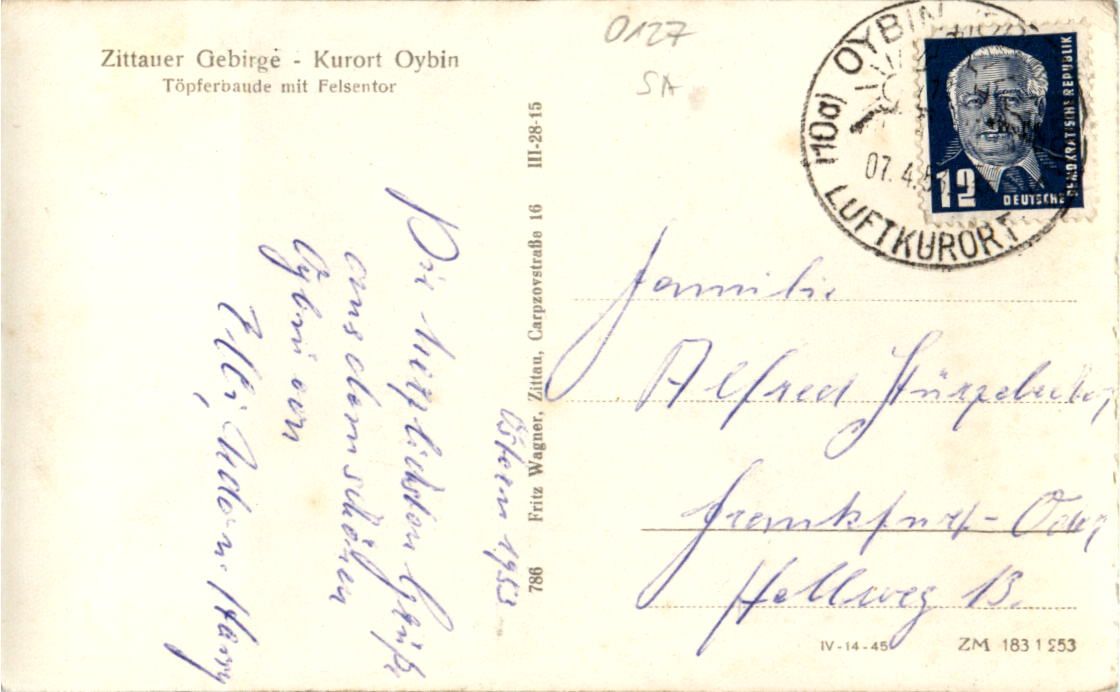 Zittauer Gebirge - Kurort Oybin
Töpferbaude mit Felsentor
0127
SA
(10a) OYBIN
07.4.53
LUFTKURORT
12
DEUTSCHE DEMOKRATISCHE REPUBLIK
Ostern 1953
Die herzlichsten Grüße
aus dem schönen
Oybin von
Elli, Udo u.
786 Fritz Wagner, Zittau, Carpzovstraße 16 III-28-15
Familie
Alfred
Frankfurt-Oder
Hellweg 13.
IV-14-45 ZM 183 1 253